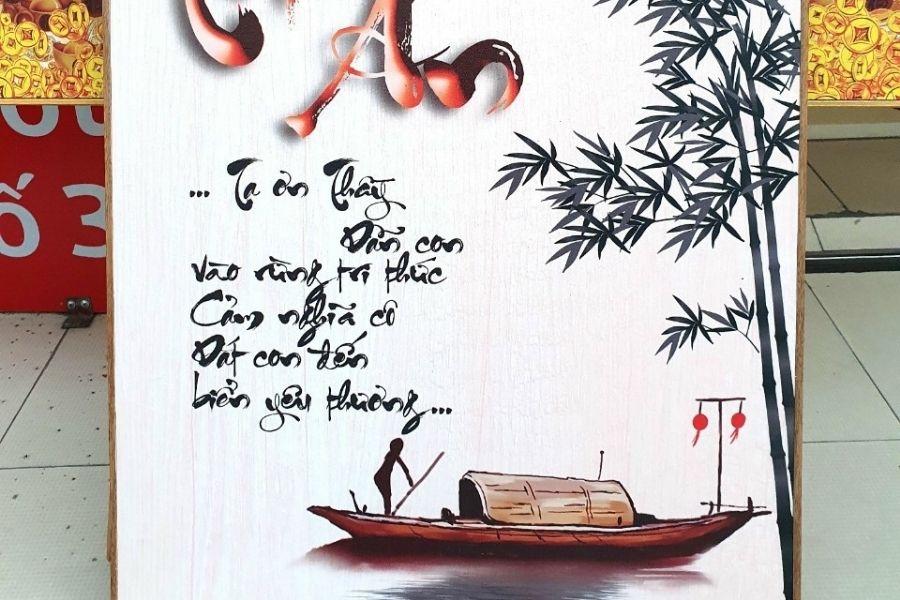 Ân
... Tạ ơn Thầy
Dẫn con
vào rừng tri thức
Cảm nghĩa cô
Dắt con đến
biển yêu thương...
Ố 3